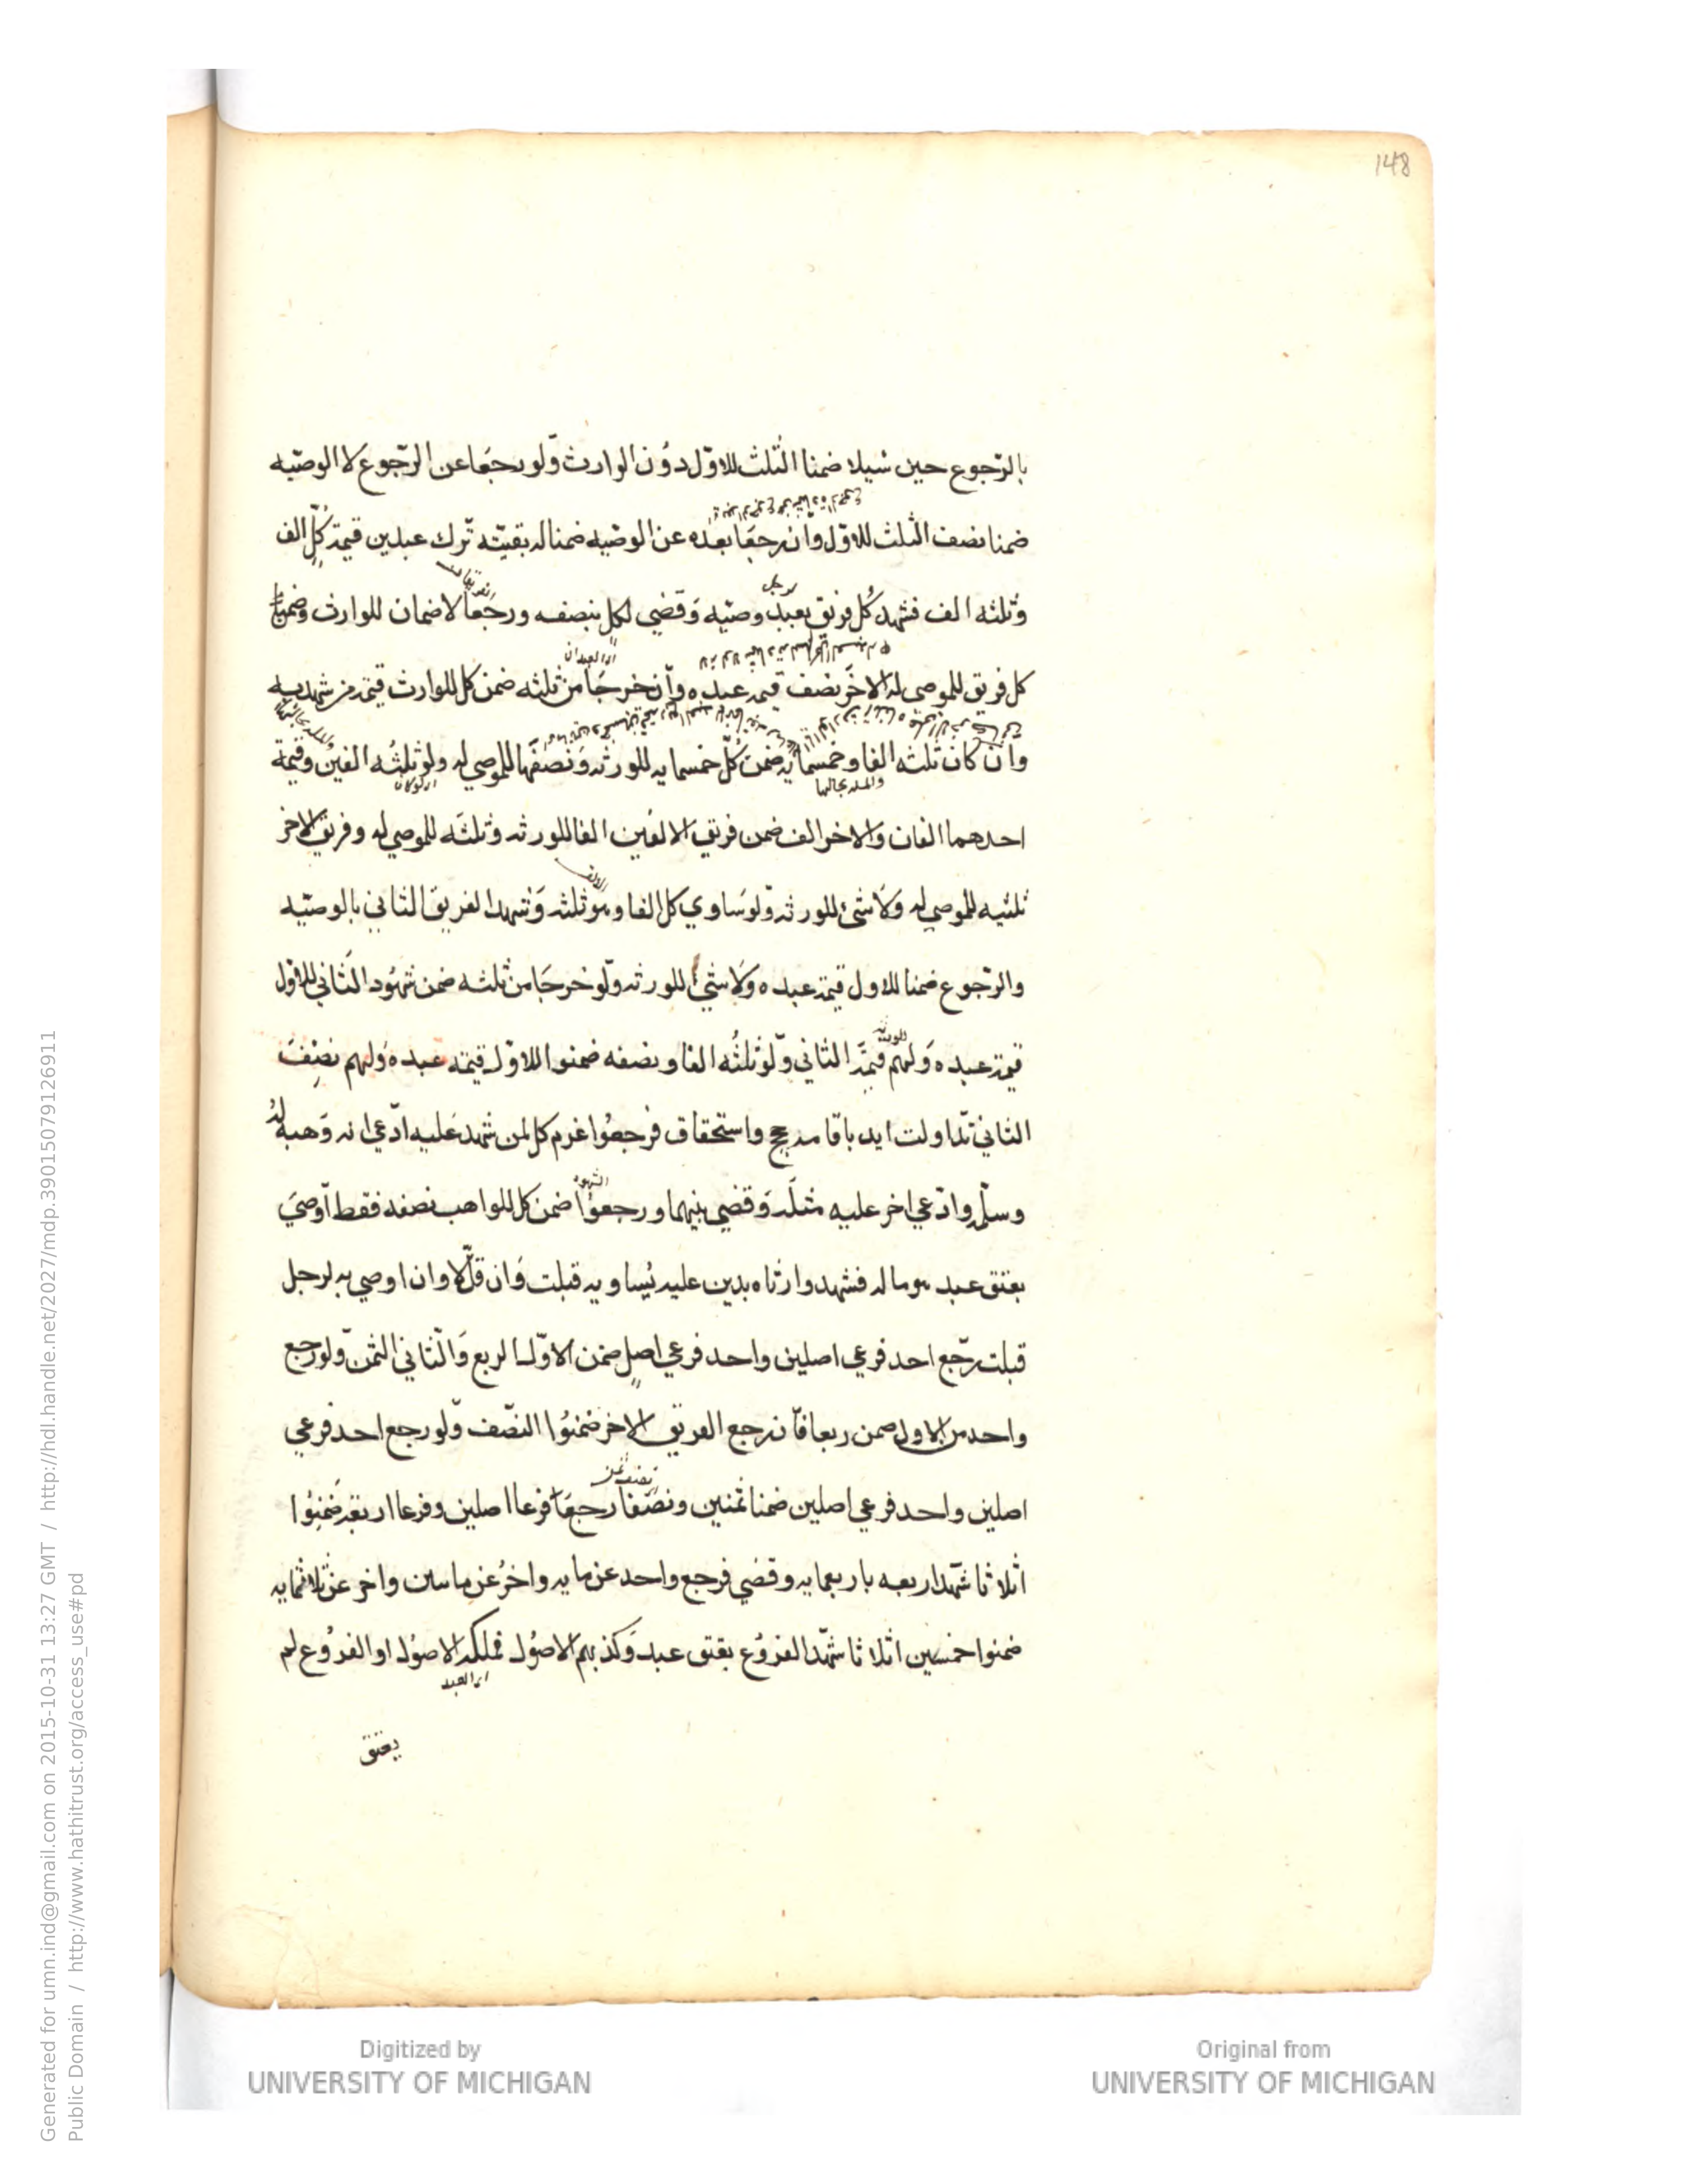 148
بالرّجوع حين سُيلا ضمنا الثلث للاوّل دوُن الوارث وّلو رجعَا عن الرّجوع لا الوصيّه
ضمنا نصف الثلث للاوّل وان رجعَا بعده عن الوصيه ضمنا له بقيّته ترك عبدين قيمة كُلّ الف
وثلثه الف فشهد كُل فريق بعبد وصيّه وَقضي لكل بنصفه ورجَعَا لا ضمان للوارث وضمن
لرجل
كل فريق للموصى له الاخَر نصف قيمة عبده وان خرجَا من ثلثه ضمن كل للوارث قيمة من شهد به
اي العبدان
وان كان ثلثه الفا وخمسمايه ضمن كلّ خمسمايه للورثه وَنصفَها للموصي له ولو ثلثُه الفين وقيمة
والمسله بحالها
اي لو كان
احدهما الفان والاخر الف ضمن فريق الالفين الفا للورثه وثلثَه للموصي له وفريق الاخر
ثلثيه للموصي له وَلاَ شئ للورثه وّلو سَاوي كل الفا وهو ثلثه وَشهد الفريق الثاني بالوصيّه
الالف
والرّجوع ضمنا للاول قيمة عبده وَلاَ شئ للورثه وّلو خرجَا من ثلثه ضمن شهُود الثاني للاول
قيمة عبده وَلهم قيمَة الثاني وّلو ثلثُه الفا ونصفه ضمنوا للاوّل قيمة عبده وَلهم نصِفَ
للورثه
الثاني تداولت ايد باقامة حجج واستحقاق فرجعُوا غرم كل لمن شهد عَليه ادّعي انه وَهبه لهُ
وسلّم وادّعي اخر عليه مثلَه وَقضي بينهما ورجعوُا ضمن كل للواهب نصفه فقط اَوصيَ
الشهود
بعتق عبد هو ماله فشهد وارثاه بدين عليه يُساويه قبلت وَان قلّ لا وان اوصي به لرجل
قبلت رجّع احد فرعي اصلين واحد فرعي اصل ضمن الاوّل الربع وَالثاني الثمن وّلو رجع
واحد من الاول ضمن ربعا فان رجع الفريق الاخر ضمنُوا النصّف وّلو رجع احد فرعي
اصلين واحد فرعي اصلين ضمنا ثمنين ونصَفا رجعَا فرعا اصلين وفرعا اربعة ضَمنوُا
نصف ثمن
اثلاثا شهّد اربعه باربعمايه وقضي فرجع واحد عن مايه واخرُ عن ماىىىن واخر عن ثلاثمايه
ضمنوا خمسين اثلاثا شهّد الفروُع بعتق عبد وَكذبهم الاصوُل فملكه الاصوُل او الفروُع لم
اي العبد
يعتق
Generated for umn.ind@gmail.com on 2015-10-31 13:27 GMT / http://hdl.handle.net/2027/mdp.39015079126911
Public Domain / http://www.hathitrust.org/access_use#pd
Digitized by
UNIVERSITY OF MICHIGAN
Original from
UNIVERSITY OF MICHIGAN